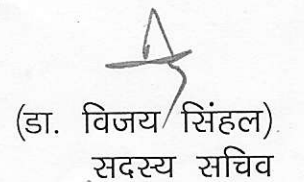 (डा. विजय सिंहल)
सदस्य सचिव